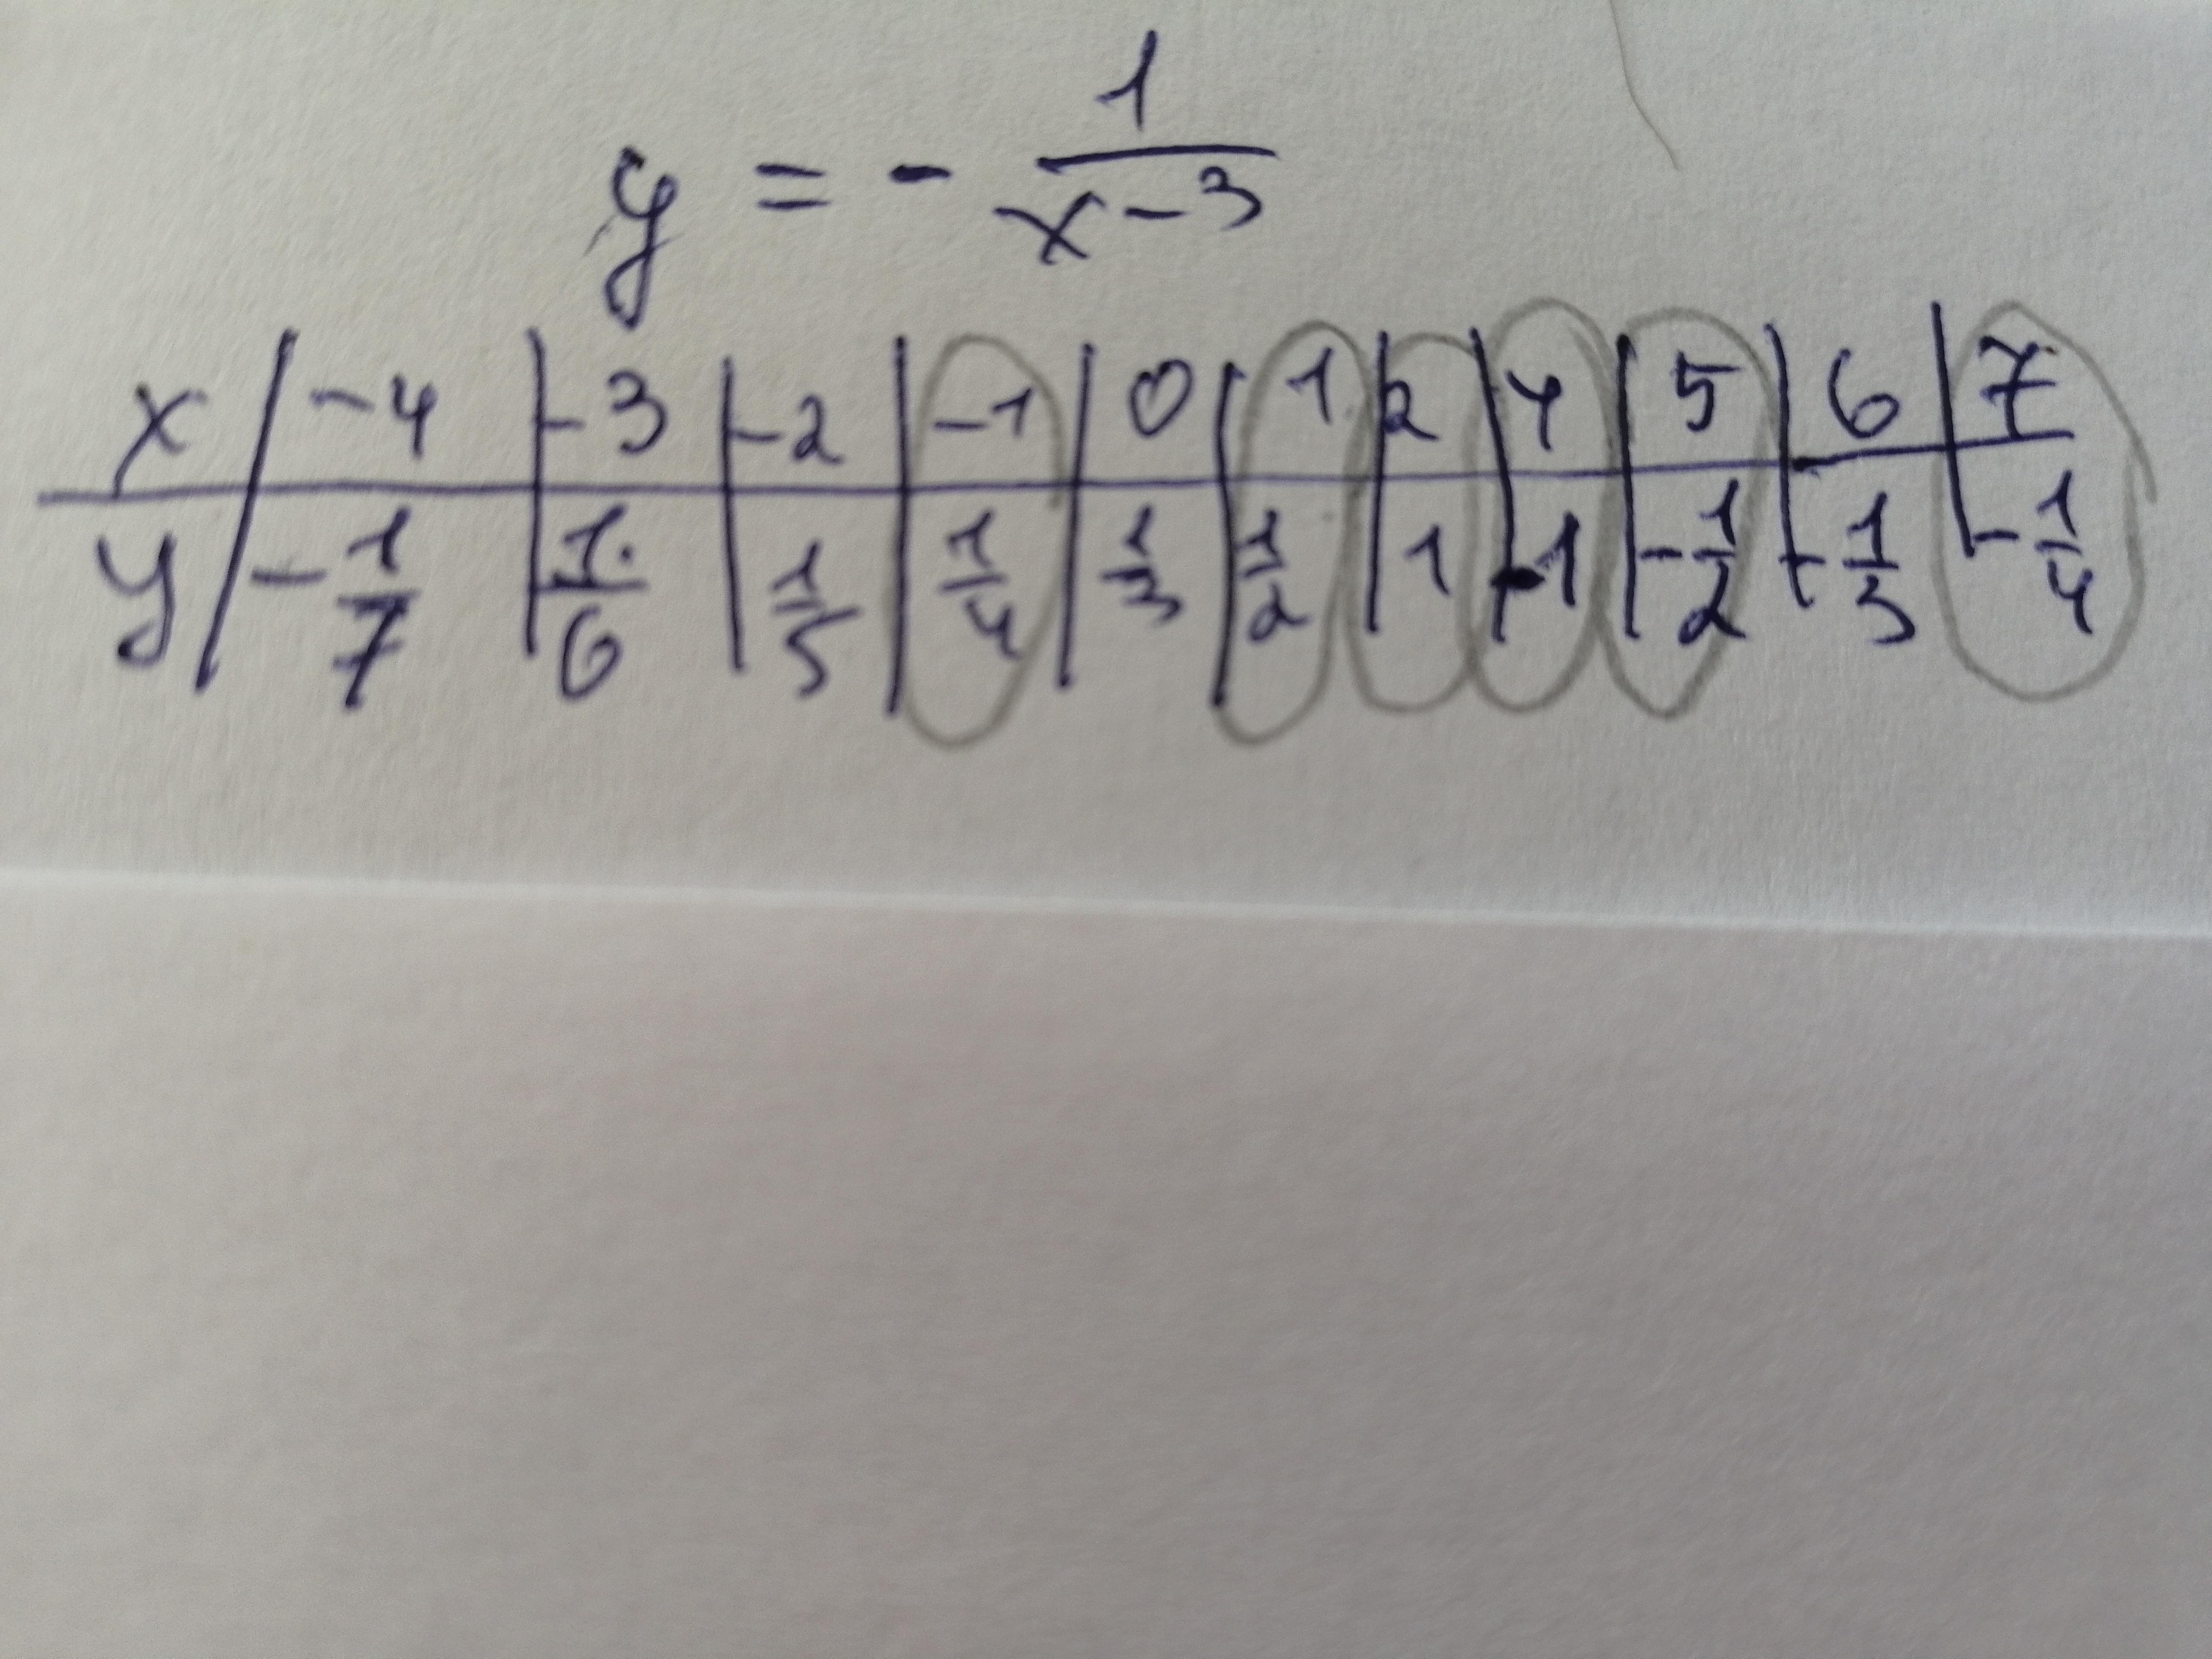 y = - 1/(x-3)
x | -4 | -3 | -2 | -1 | 0 | 1 | 2 | 4 | 5 | 6 | 7
y | - 1/7 | 1/6 | 1/5 | 1/4 | 1/3 | 1/2 | 1 | -1 | - 1/2 | - 1/3 | - 1/4